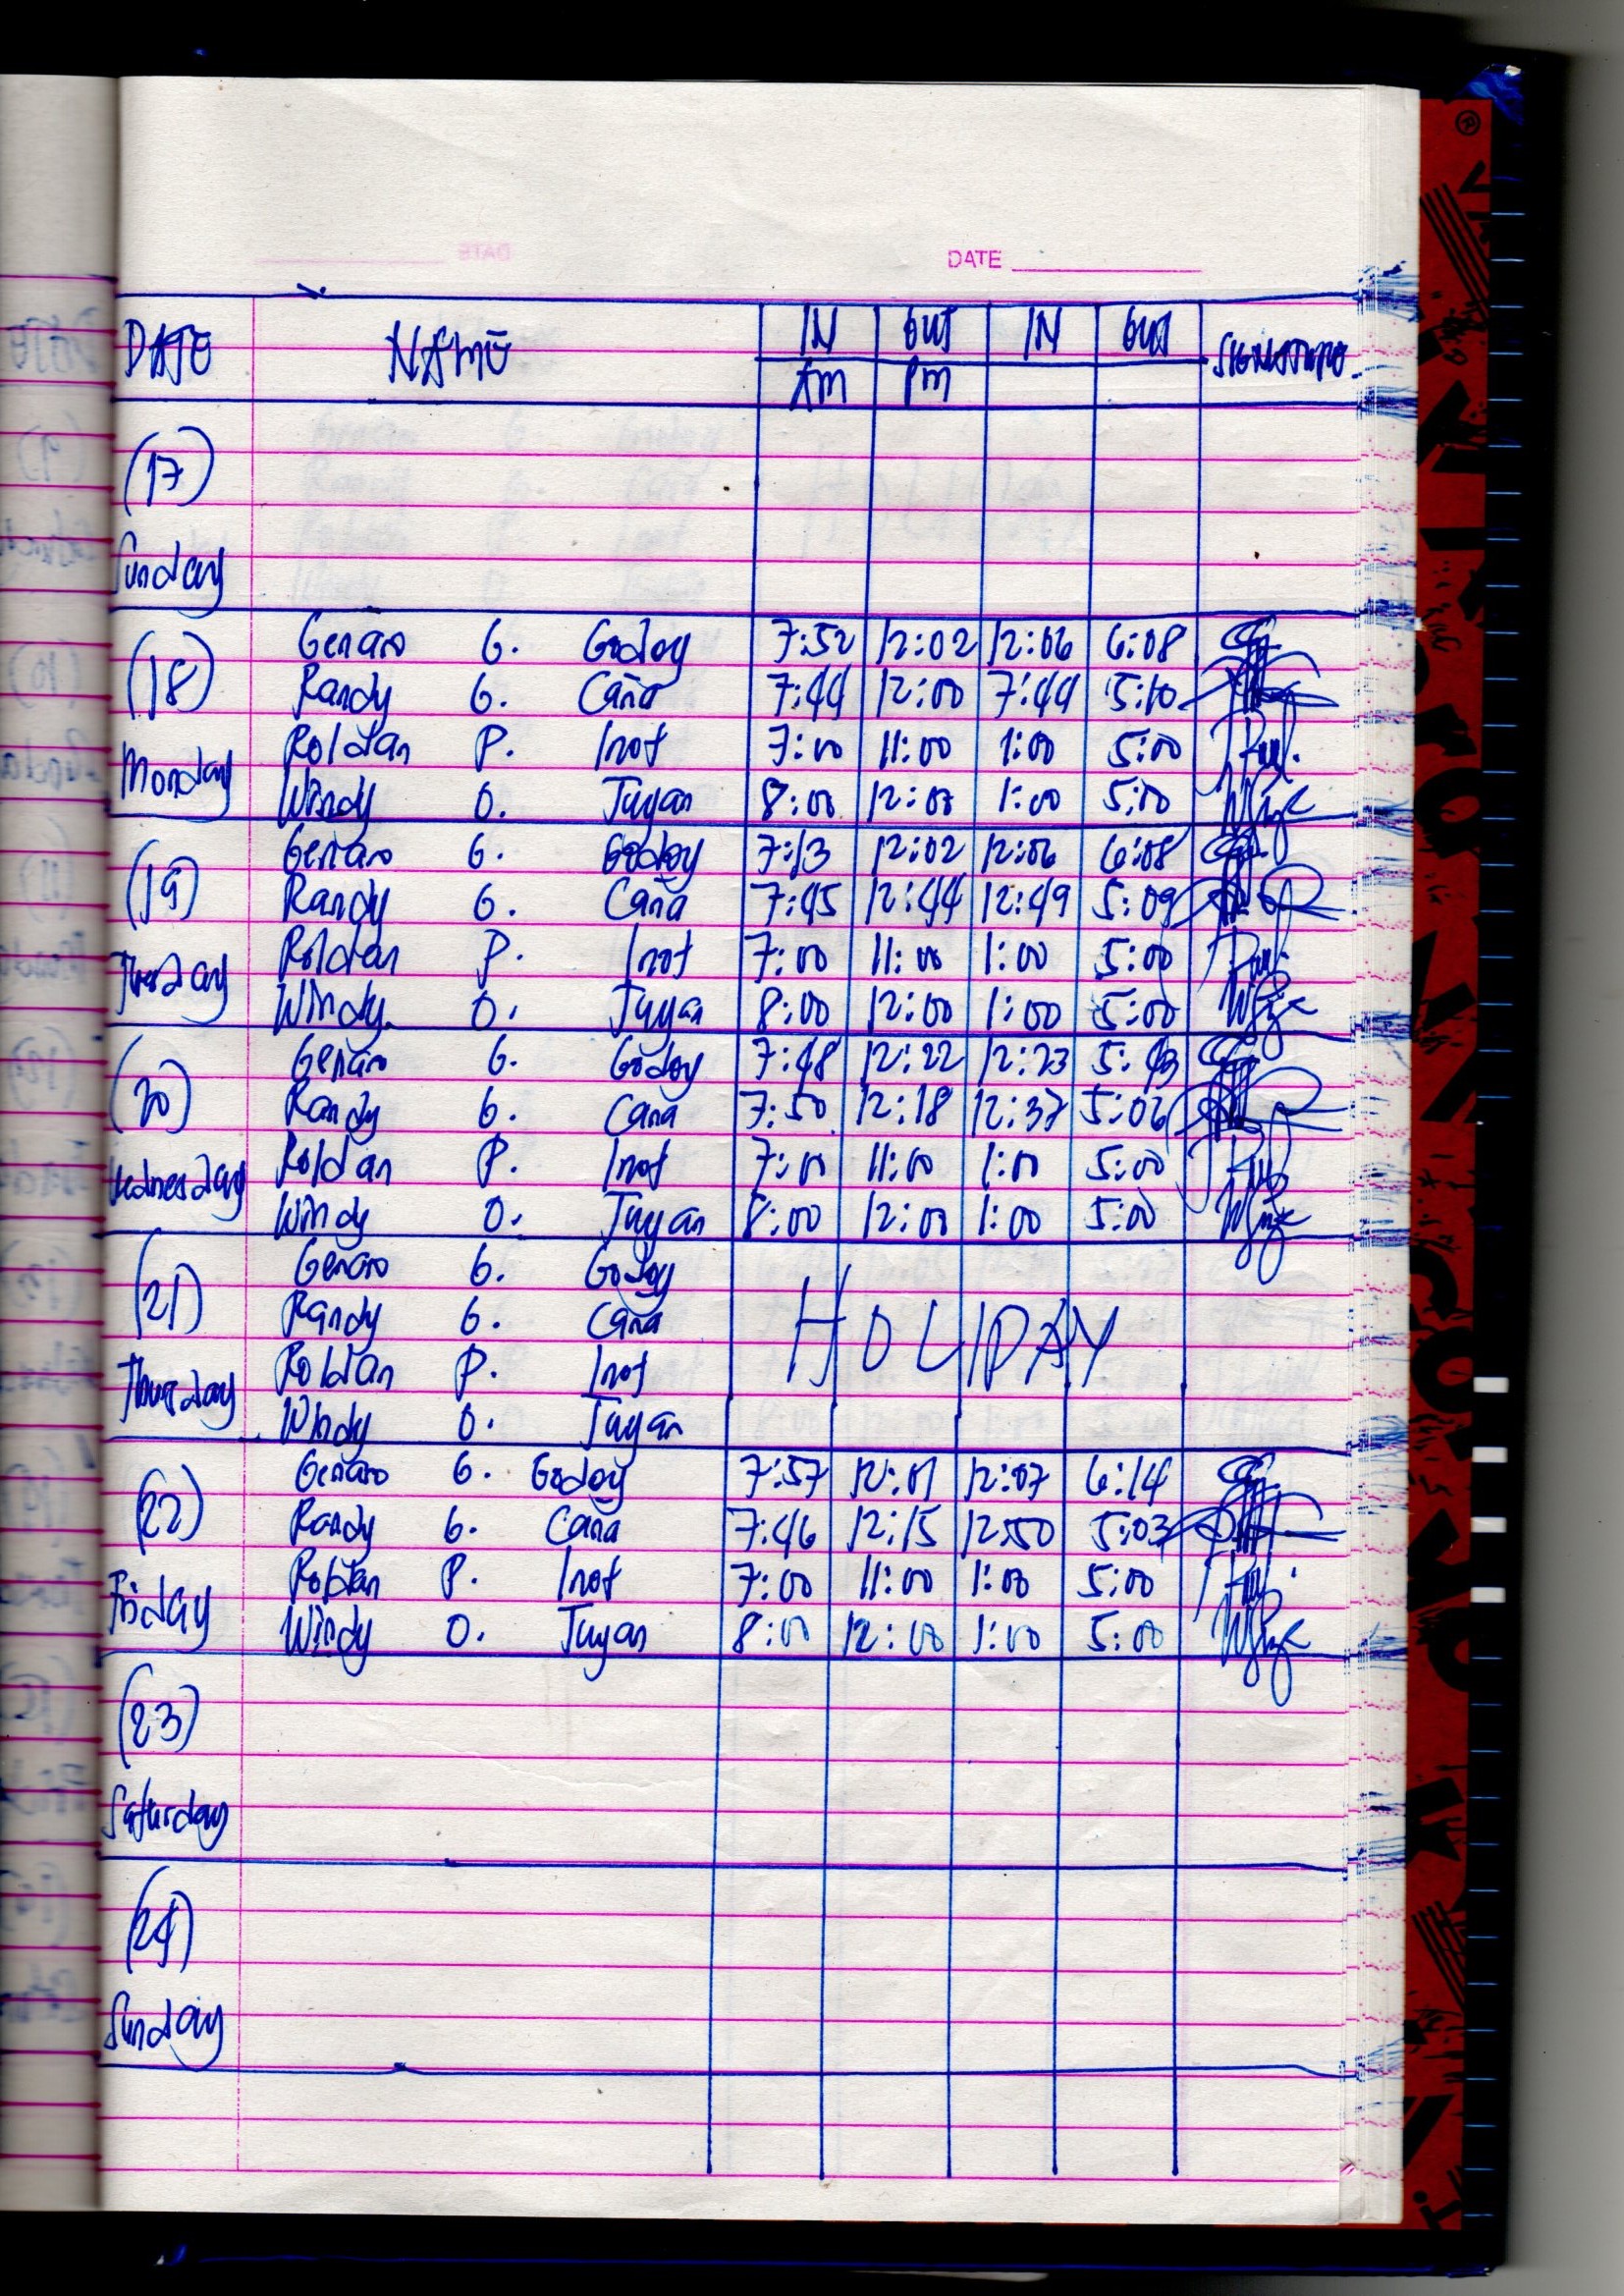 DATE
DATE NAME IN OUT IN OUT SIGNATURE
AM PM
(17)
Sunday
Genaro G. Godoy 7:52 12:02 12:06 6:08
(18) Randy G. Caña 7:44 12:00 7:44 5:10
Roldan P. Inot 7:00 11:00 1:00 5:00
Monday Windy O. Tuyan 8:00 12:00 1:00 5:00
Genaro G. Godoy 7:13 12:02 12:06 6:08
(19) Randy G. Caña 7:45 12:44 12:49 5:09
Roldan P. Inot 7:00 11:00 1:00 5:00
Tuesday Windy O. Tuyan 8:00 12:00 1:00 5:00
Genaro G. Godoy 7:48 12:22 12:23 5:43
(20) Randy G. Caña 7:50 12:18 12:37 5:06
Roldan P. Inot 7:00 11:00 1:00 5:00
Wednesday Windy O. Tuyan 8:00 12:00 1:00 5:00
Genaro G. Godoy
(21) Randy G. Caña HOLIDAY
Roldan P. Inot
Thursday Windy O. Tuyan
Genaro G. Godoy 7:57 12:01 12:07 6:14
(22) Randy G. Caña 7:46 12:15 12:50 5:03
Roldan P. Inot 7:00 11:00 1:00 5:00
Friday Windy O. Tuyan 8:00 12:00 1:00 5:00
(23)
Saturday
(24)
Sunday